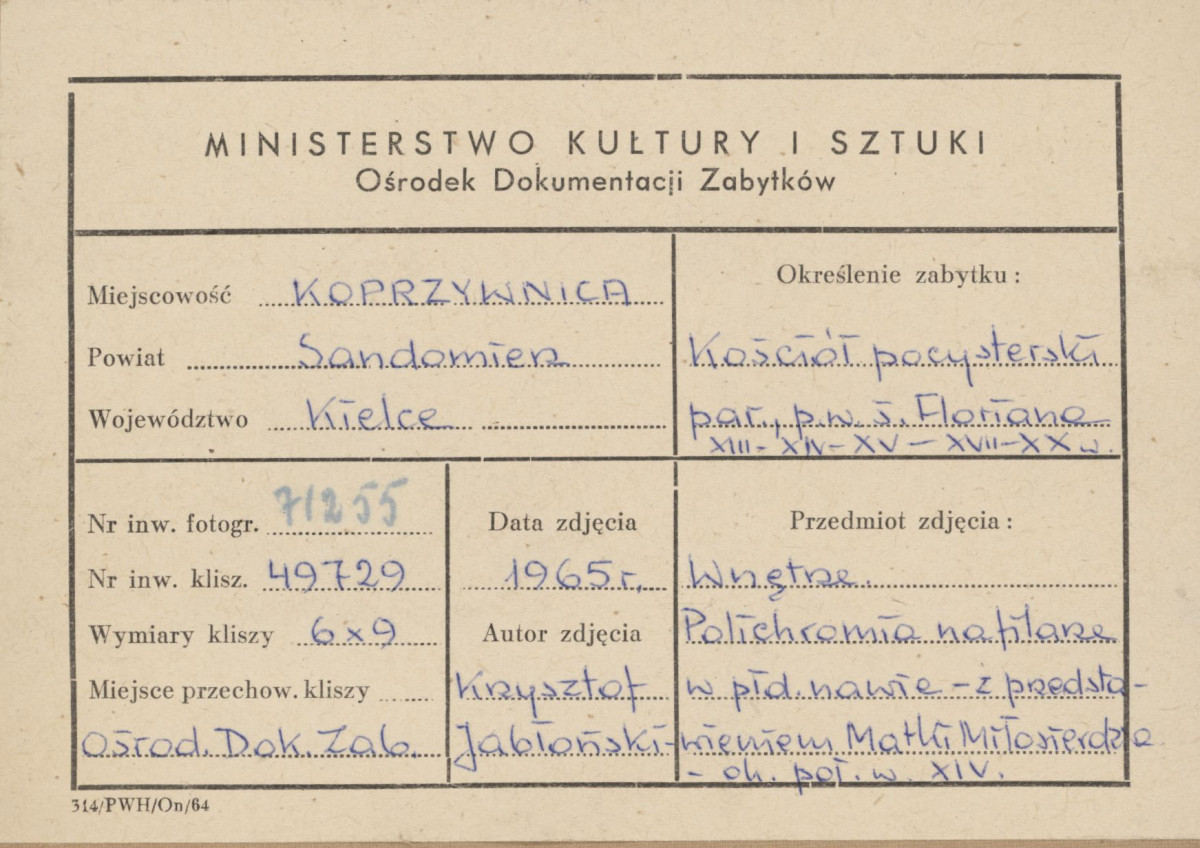 MINISTERSTWO KULTURY I SZTUKI
Ośrodek Dokumentacji Zabytków
Miejscowość KOPRZYWNICA
Powiat Sandomierz
Województwo Kielce
Określenie zabytku:
Kościół pocysterski
par., p.w. ś. Floriana
XIII-XIV-XV-XVII-XX w.
Nr inw. fotogr. 71255
Nr inw. klisz. 49729
Wymiary kliszy 6x9
Miejsce przechow. kliszy
Ośrod. Dok. Zab.
Data zdjęcia
1965 r.
Autor zdjęcia
Krzysztof
Jabłoński
Przedmiot zdjęcia:
Wnętrze.
Polichromia na filarze
w płd. nawie - z przedsta-
wieniem Matki Miłosierdzia
- ok. poł. w. XIV.
314/PWH/On/64